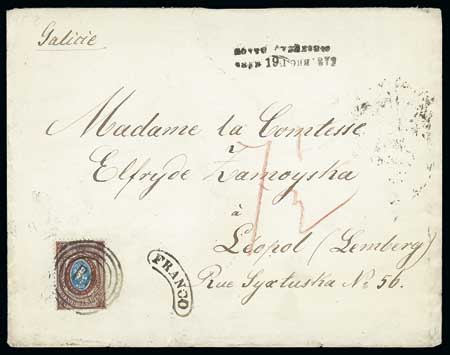 Galicie
19
Madame la Comtesse
Elfryde Zamoyska
7½
à
Léopol (Lemberg)
FRANCO
Rue Syxtuska No 56.